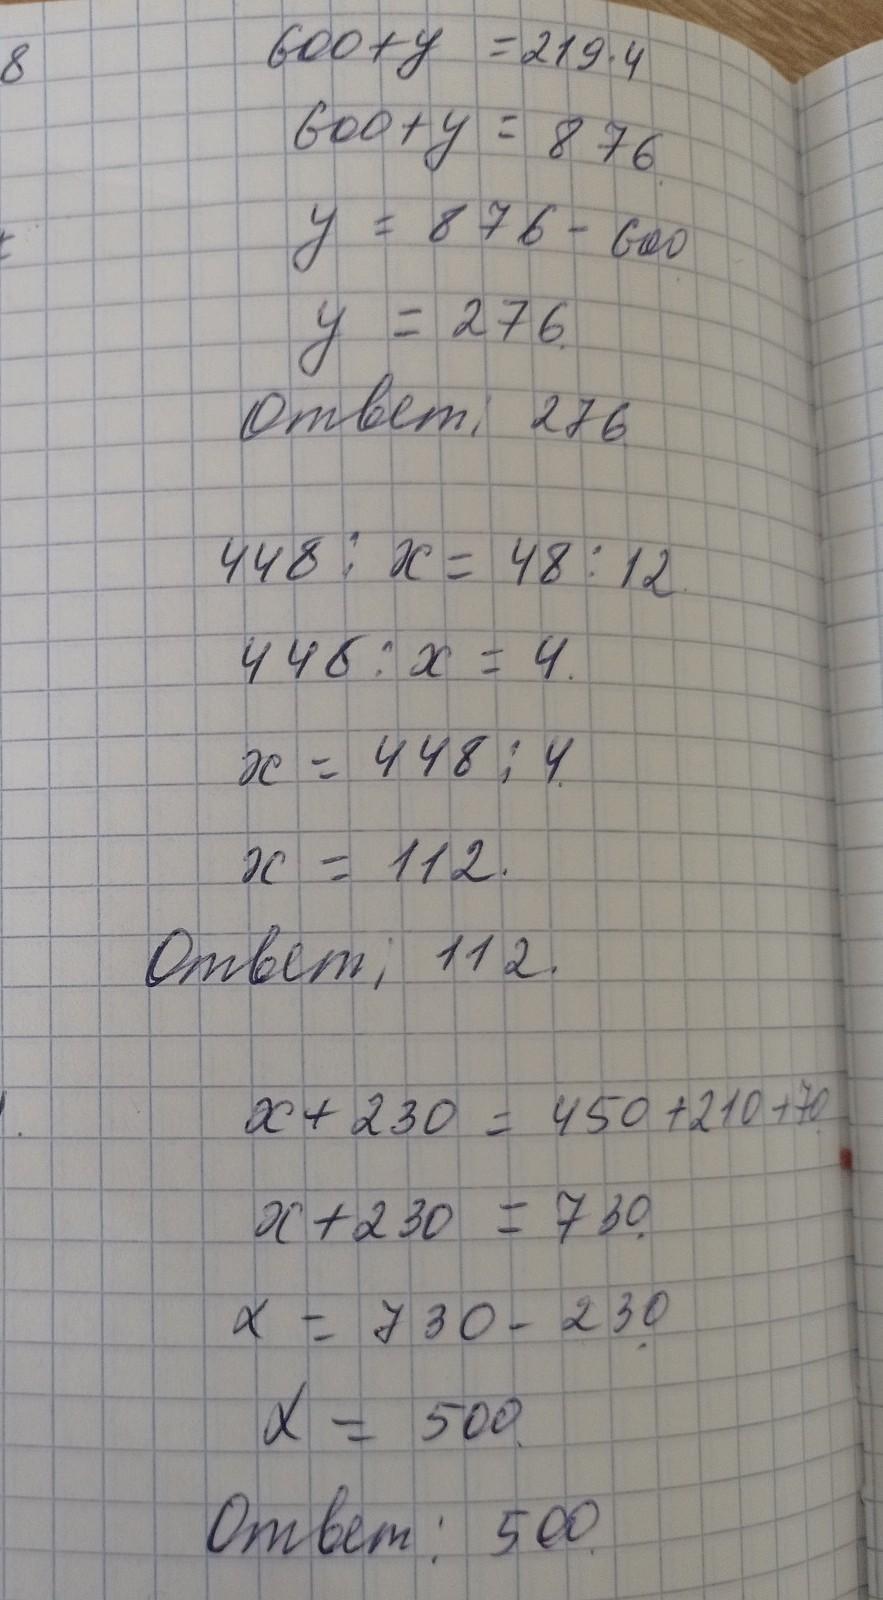 8
600+y = 219·4
600+y = 876.
y = 876 - 600
y = 276.
Ответ; 276
448 : x = 48 : 12.
446 : x = 4.
x = 448 : 4.
x = 112.
Ответ; 112.
x + 230 = 450 + 210 + 70.
x + 230 = 730.
x = 730 - 230.
x = 500.
Ответ: 500.